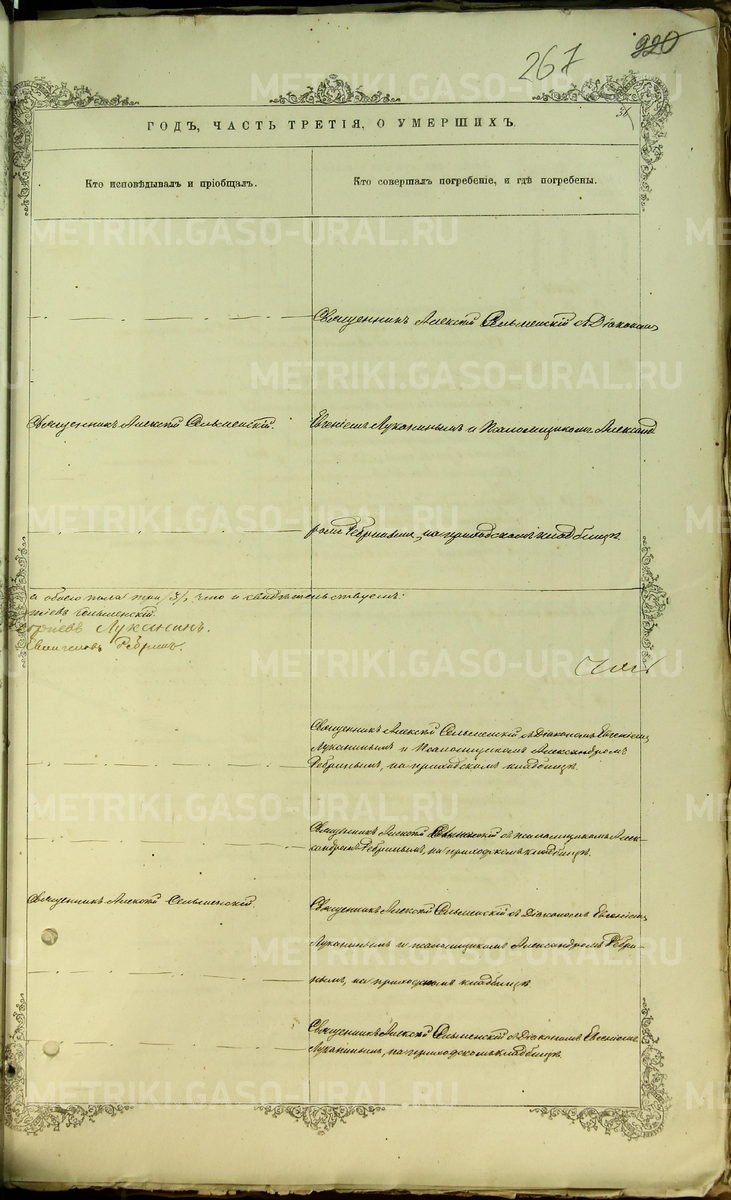 267
220
ГОДЪ, ЧАСТЬ ТРЕТІЯ, О УМЕРШИХЪ.
Кто исповѣдывалъ и пріобщалъ.
Кто совершалъ погребеніе, и гдѣ погребены.
Священникъ Алексій Сельменскій съ Діакономъ
Священникъ Алексій Сельменскій.
Евгеніемъ Луканинымъ и Псаломщикомъ Александ
ромъ Ребринымъ, на приходскомъ кладбищѣ.
а обоего пола три /3/, что и свидѣтельствуемъ:
Сельменскій
Луканинъ.
Ребринъ.
Священникъ Алексій Сельменскій съ Діакономъ Евгеніемъ
Луканинымъ и Псаломщикомъ Александромъ
Ребринымъ, на приходскомъ кладбищѣ.
Священникъ Алексій Сельменскій съ псаломщикомъ Алек-
сандромъ Ребринымъ, на приходскомъ кладбищѣ.
Священникъ Алексій Сельменскій.
Священникъ Алексій Сельменскій съ Діакономъ Евгеніемъ
Луканинымъ и псаломщикомъ Александромъ Ребри-
нымъ, на приходскомъ кладбищѣ
Священникъ Алексій Сельменскій съ Діакономъ Евгеніемъ
Луканинымъ, на приходскомъ кладбищѣ.
METRIKI.GASO-URAL.RU